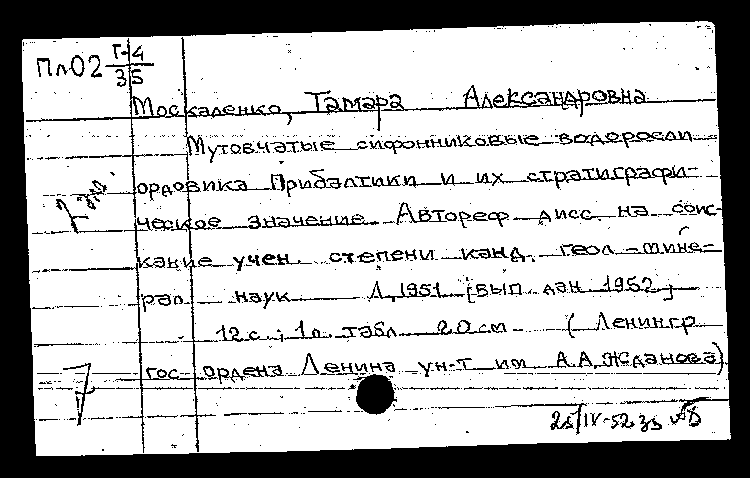 Пл02 Г-4
35
Москаленко, Тамара Александровна
Мутовчатые сифонниковые водоросли
ордовика Прибалтики и их стратиграфи-
ческое значение. Автореф дисс. на соис-
кание учен. степени канд. геол-мине-
рал наук Л, 1951 [вып дан. 1952]
12 с.; 1 л. табл 20 см (Ленингр
гос ордена Ленина ун-т им А.А. Жданова)
25/IV-52